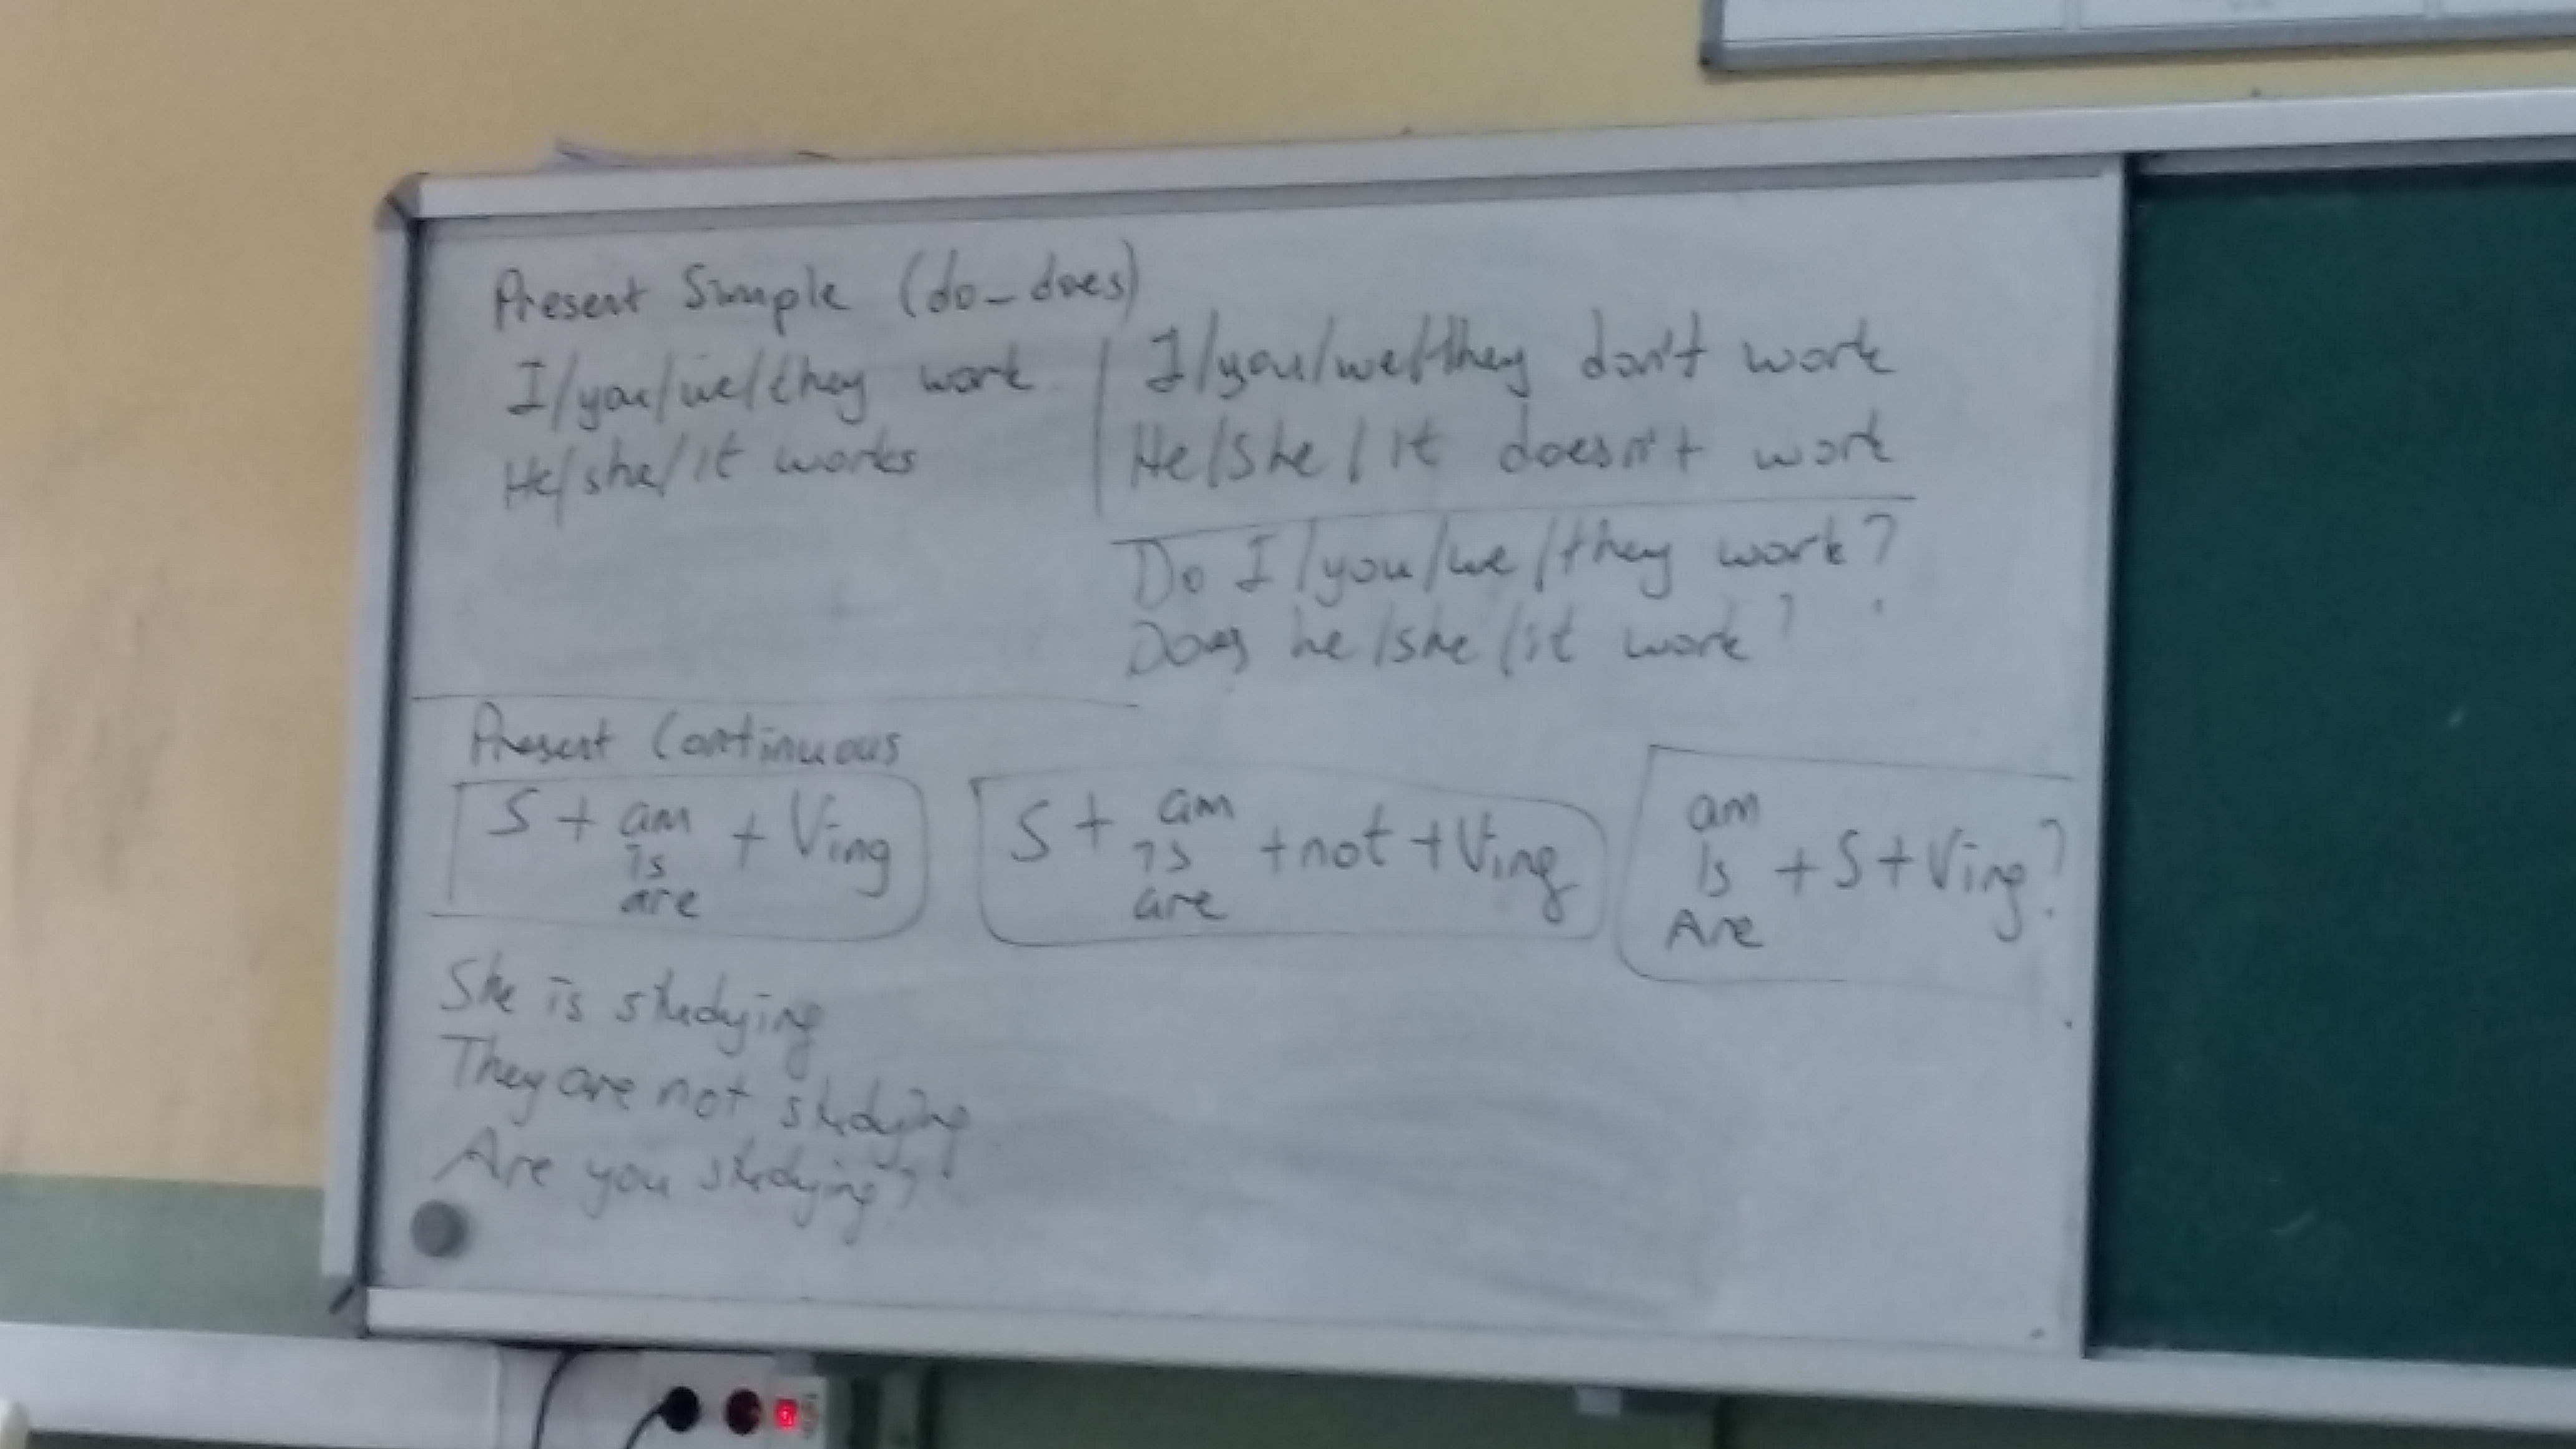 Present Simple (do_does)
I/you/we/they work
He/she/it works
I/you/we/they don't work
He/she/it doesn't work
Do I/you/we/they work?
Does he/she/it work?
Present Continuous
S + am + Ving
is
are
S + am + not + Ving
is
are
am
Is + S + Ving?
Are
She is studying
They are not studying
Are you studying?